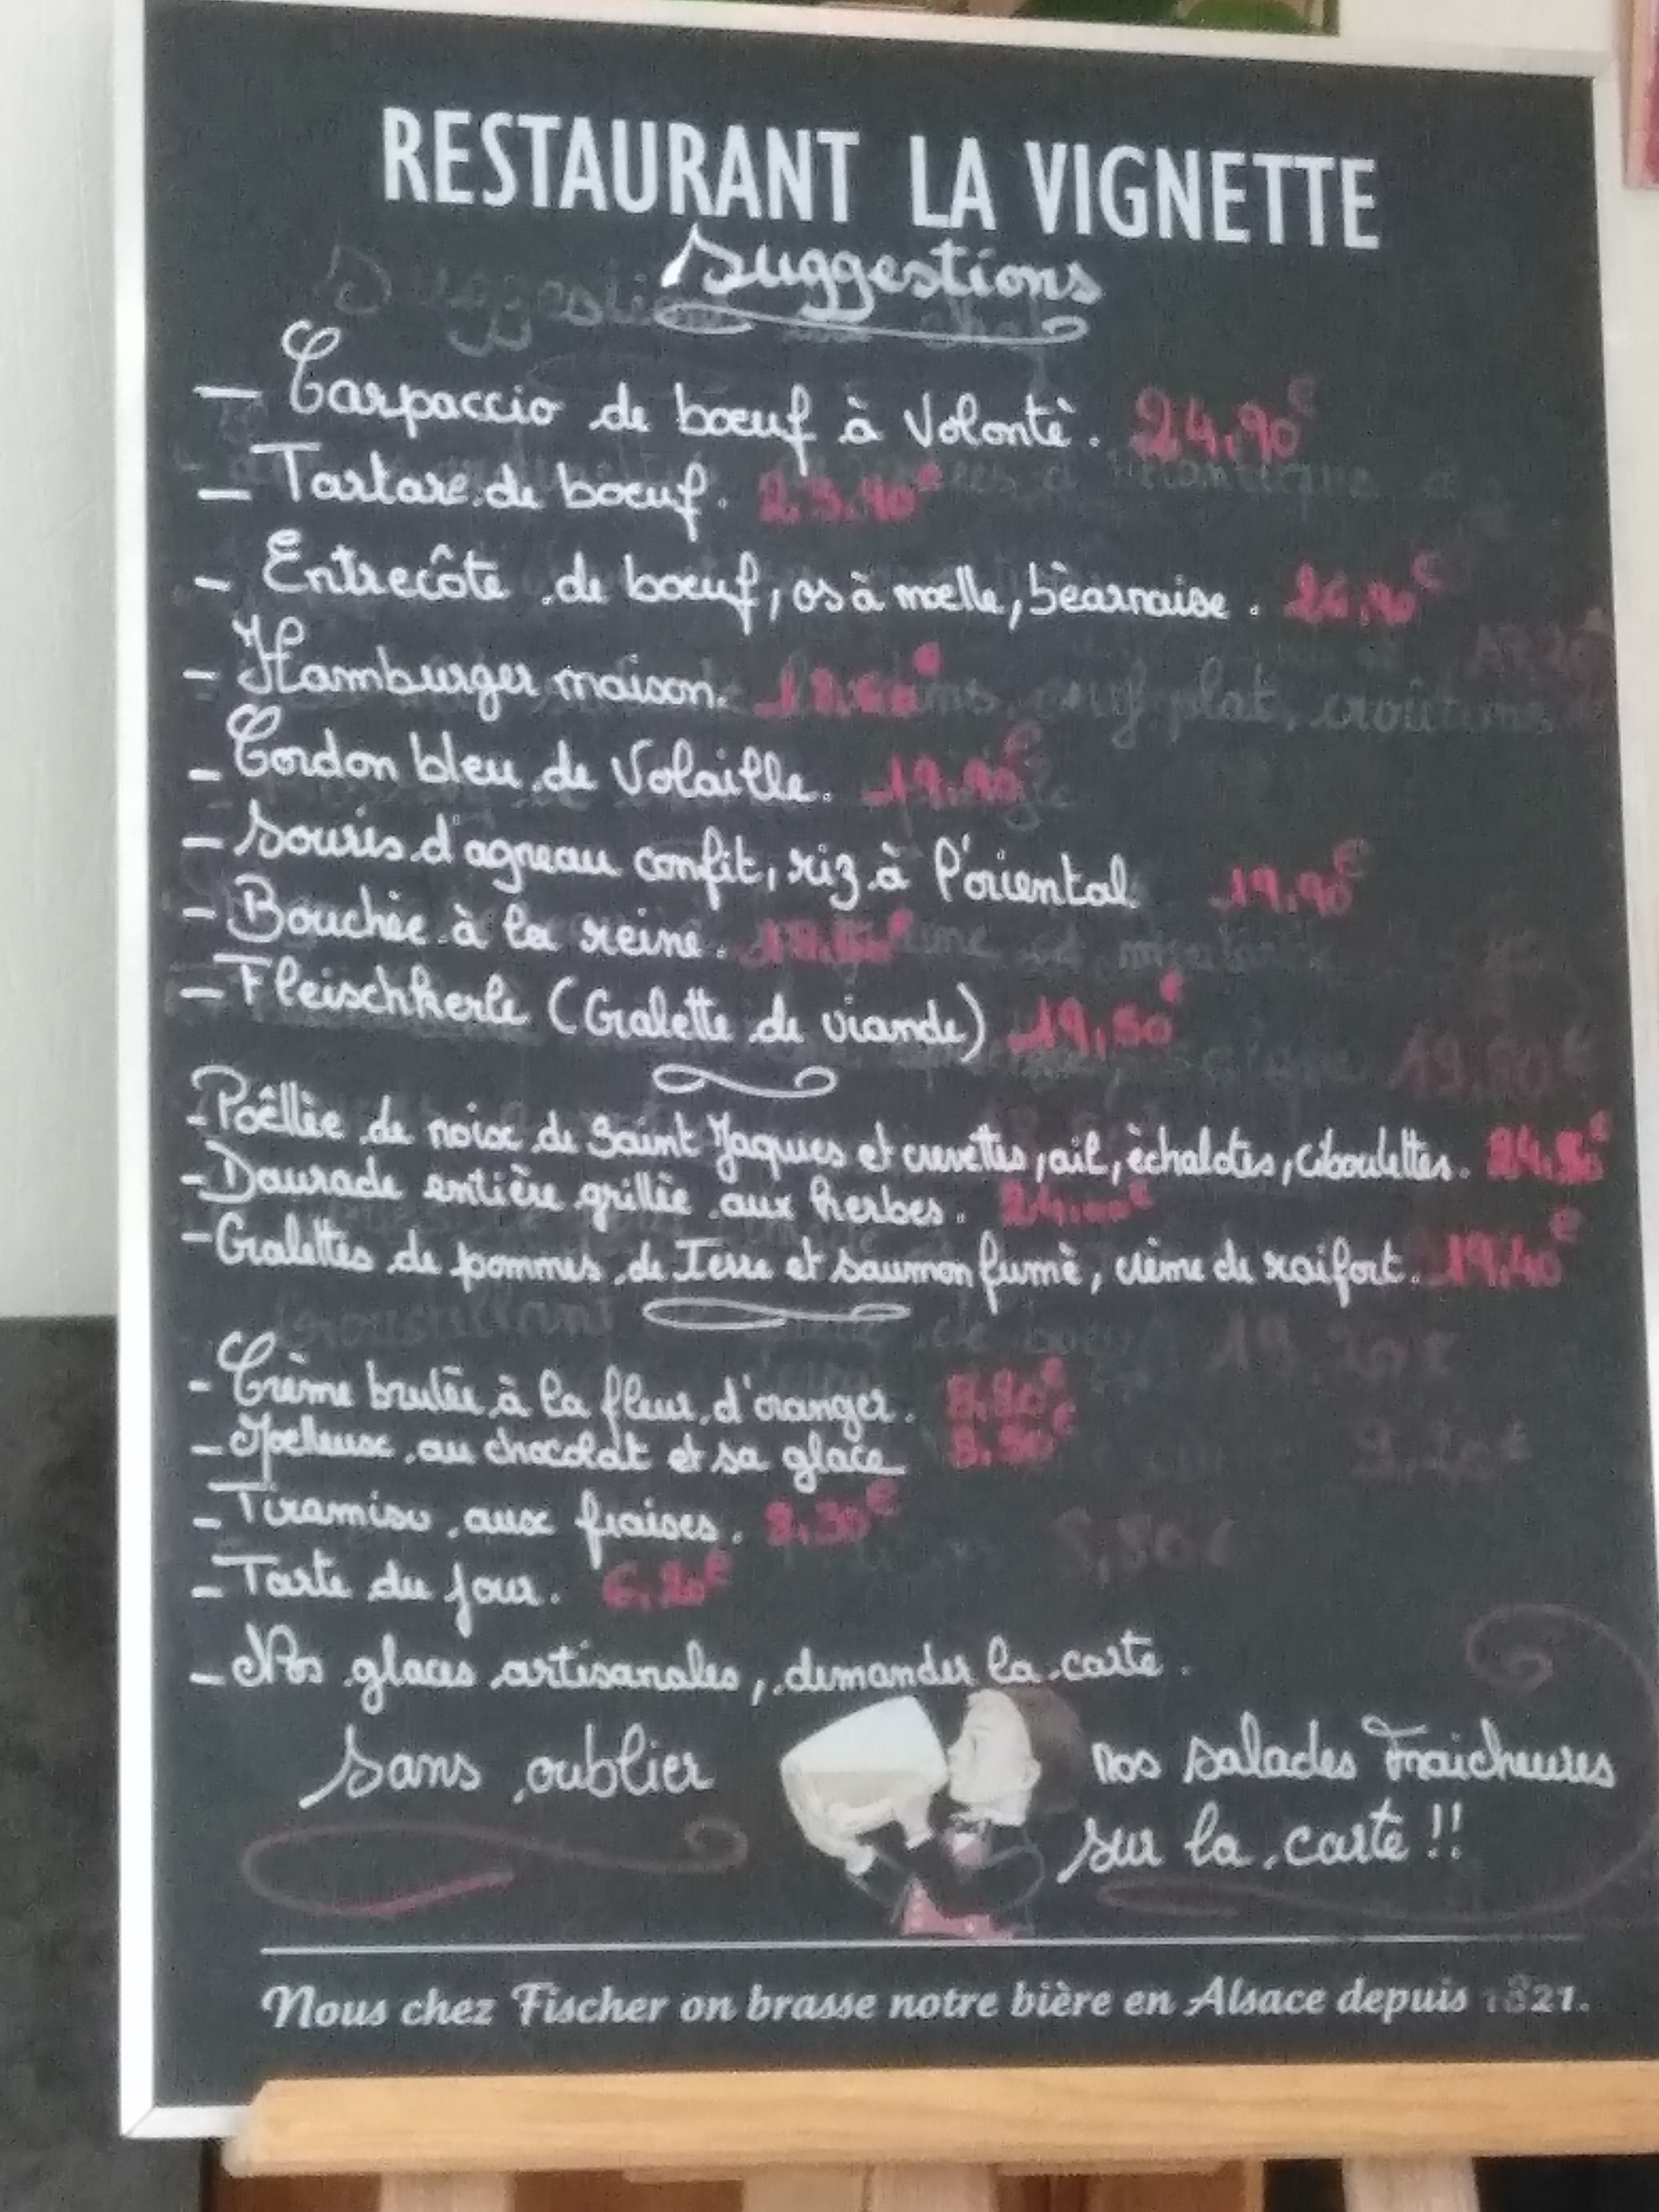 RESTAURANT LA VIGNETTE
Suggestions
- Carpaccio de boeuf à Volonté. 24,90€
- Tartare de boeuf. 23.90€
- Entrecôte de boeuf, os à moelle, béarnaise. 26,90€
- Hamburger maison.
- Cordon bleu de Volaille. 19,90€
- Souris d'agneau confit, riz à l'oriental 19,90€
- Bouchée à la reine.
- Fleischkerle (Galette de viande) 19,50€
- Poêllée de noix de Saint Jaques et crevettes, ail, échalotes, ciboulettes.
- Daurade entière grillée aux herbes.
- Galettes de pommes de Terre et saumon fumé, crème de raifort. 19,40€
- Crème brulée à la fleur d'oranger. 8,80€
- Moelleux au chocolat et sa glace
- Tiramisu aux fraises. 8,30€
- Tarte du jour. 6,20€
- Nos glaces artisanales, demander la carte.
Sans oublier nos salades Fraicheures
sur la carte !!
Nous chez Fischer on brasse notre bière en Alsace depuis 1821.